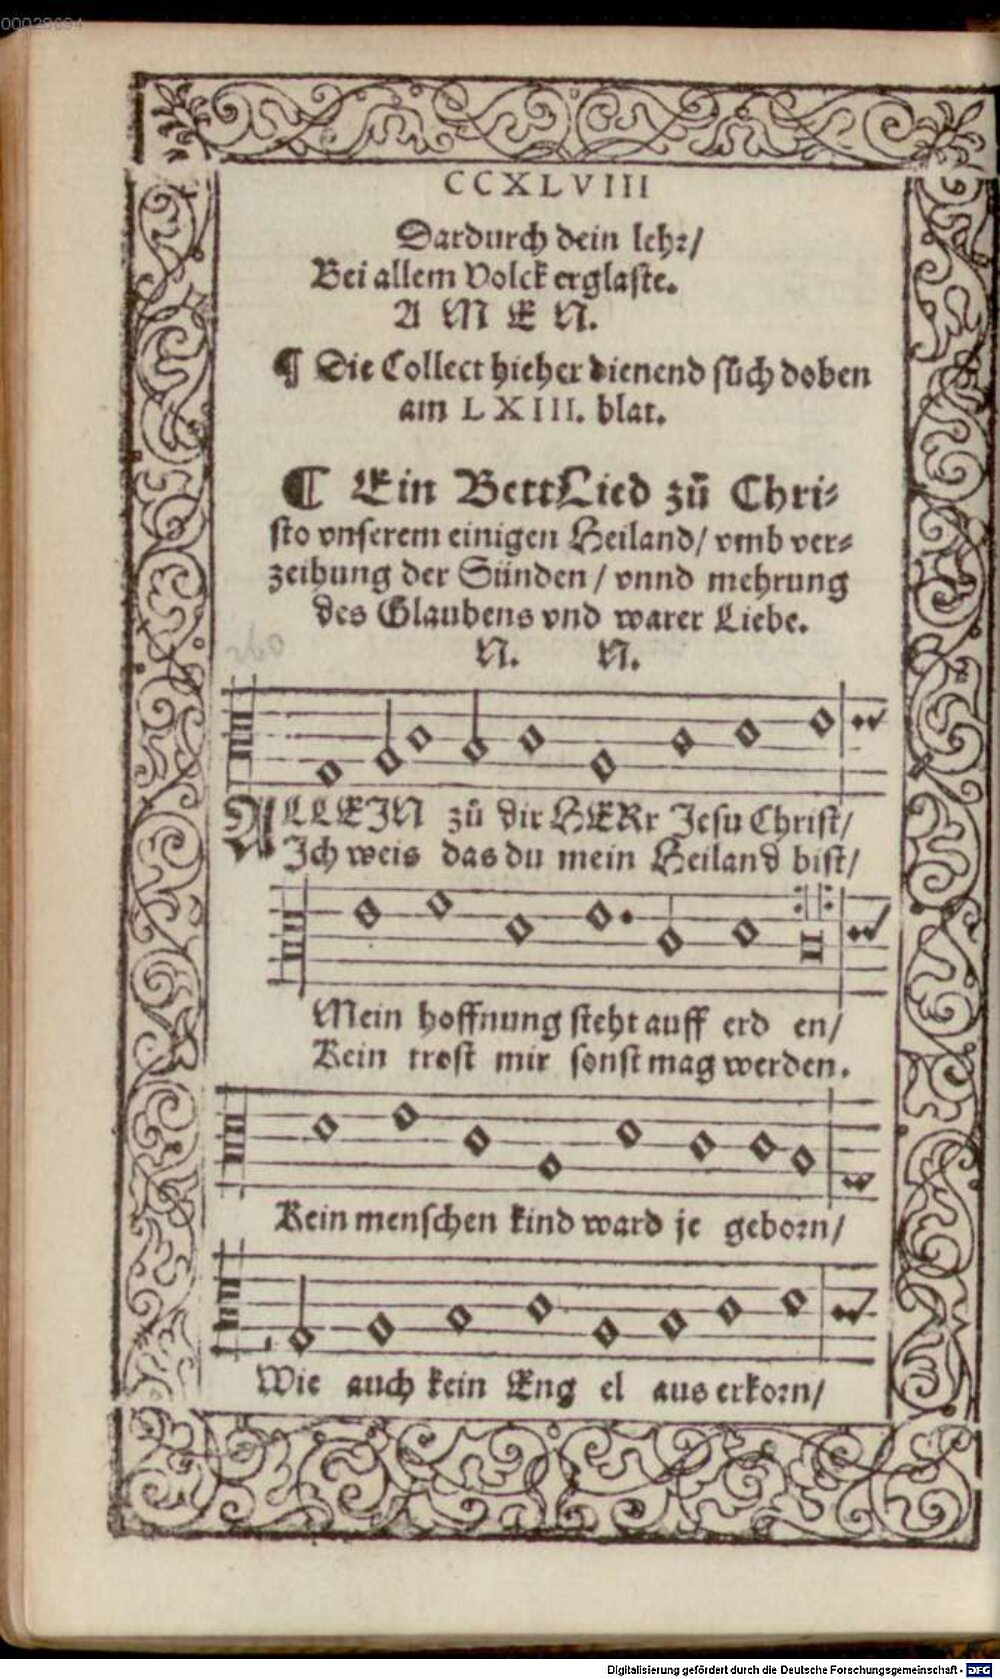 00028694
CCXLVIII
Dardurch dein lehr/
Bei allem Volck erglaste.
A M E N.
¶ Die Collect hieher dienend sůch doben
am LXIII. blat.
¶ Ein BettLied zů Chri⸗
sto vnserem einigen Heiland/ vmb ver⸗
zeihung der Sünden/ vnnd mehrung
des Glaubens vnd warer Liebe.
N. N.
260
ALLEIN zů dir HERr Jesu Christ/
Ich weis das du mein Heiland bist/
Mein hoffnung steht auff erd en/
Kein trost mir sonst mag werden.
Kein menschen kind ward je geborn/
Wie auch kein Eng el aus erkorn/
Digitalisierung gefördert durch die Deutsche Forschungsgemeinschaft - DFG